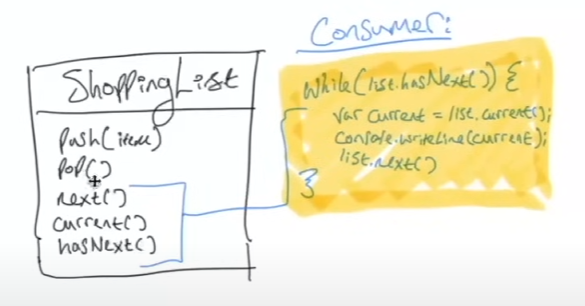 Consumer:
ShoppingList
push(item)
pop()
next()
current()
hasNext()
while(list.hasNext()) {
var current = list.current();
Console.writeLine(current);
list.next()
}